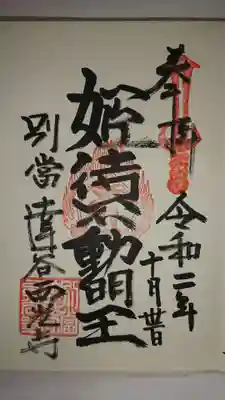 奉拝
令和二年
十月廿日
姫待不動明王
別當
西光寺